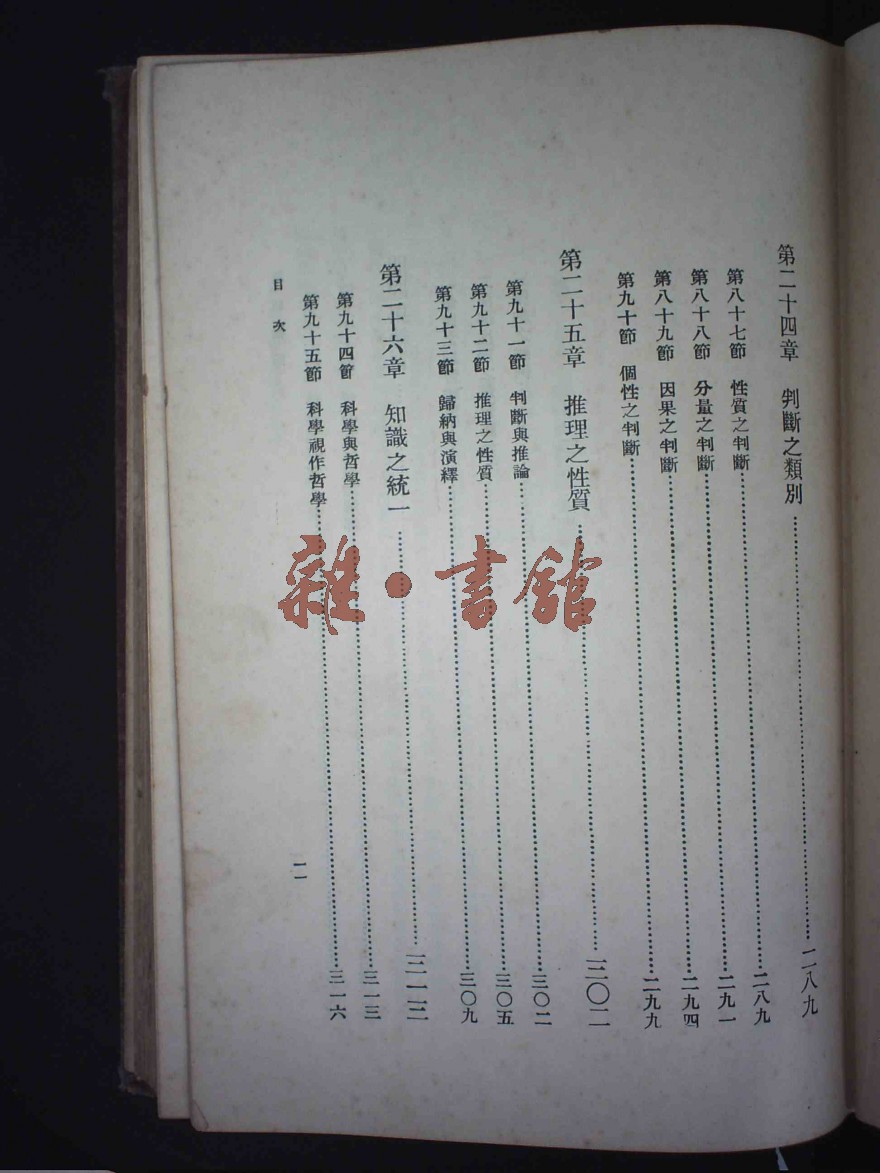 第二十四章 判斷之類別…………二八九
第八十七節 性質之判斷…………二八九
第八十八節 分量之判斷…………二九一
第八十九節 因果之判斷…………二九四
第九十節 個性之判斷…………二九九
第二十五章 推理之性質…………三〇二
第九十一節 判斷與推論…………三〇二
第九十二節 推理之性質…………三〇五
第九十三節 歸納與演釋…………三〇九
第二十六章 知識之統一…………三一三
第九十四節 科學與哲學…………三一三
第九十五節 科學視作哲學…………三一六
目次
一一
雜·書館